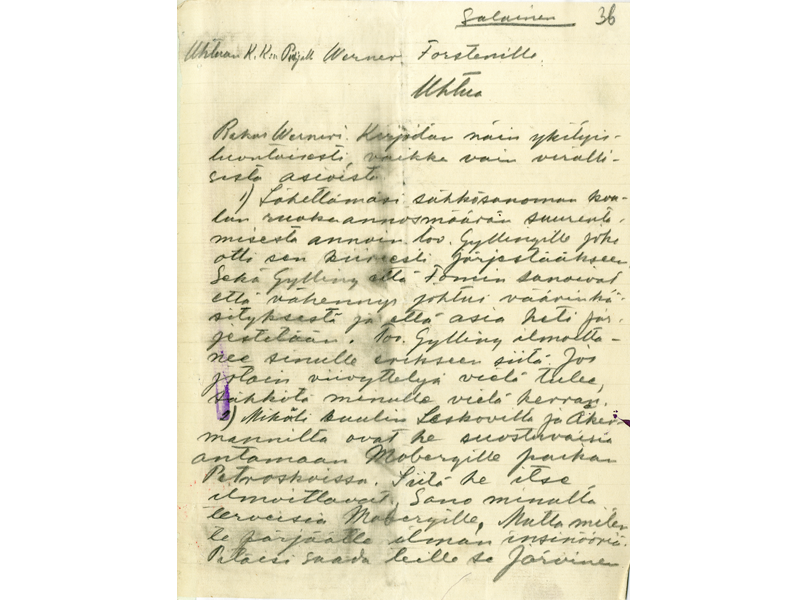 Salainen 36
Uhtuan K. K:n Werner Forstenille.
Uhtua
Rakas Werneri. Kirjoitan näin yksityis-
luontoisesti, vaikka vain viralli-
sista asioista.
1) Lähettämäsi sähkösanoman koulun
ruokaannosmäärän suurenta-
misesta annoin tov. Gyllingille joka
otti sen kiireesti järjestääkseen
Sekä Gylling että Fomin sanoivat
että vähennys johtui väärinkä-
sityksestä ja että asia heti jär-
jestetään. Tov. Gylling ilmoitta-
nee sinulle erikseen siitä. Jos
jotain viivyttelyä vielä tulee,
sähkötä minulle vielä kerran.
2) Mikäli kuulin Leskovilta ja Åker-
mannilta ovat he suostuvaisia
antamaan Mobergille paikan
Petroskoissa. Siitä he itse
ilmoittavat. Sano minulta
terveisiä Mobergille. Mutta miten
te pärjäätte ilman insinööriä.
Pitäisi saada teille se Järvinen